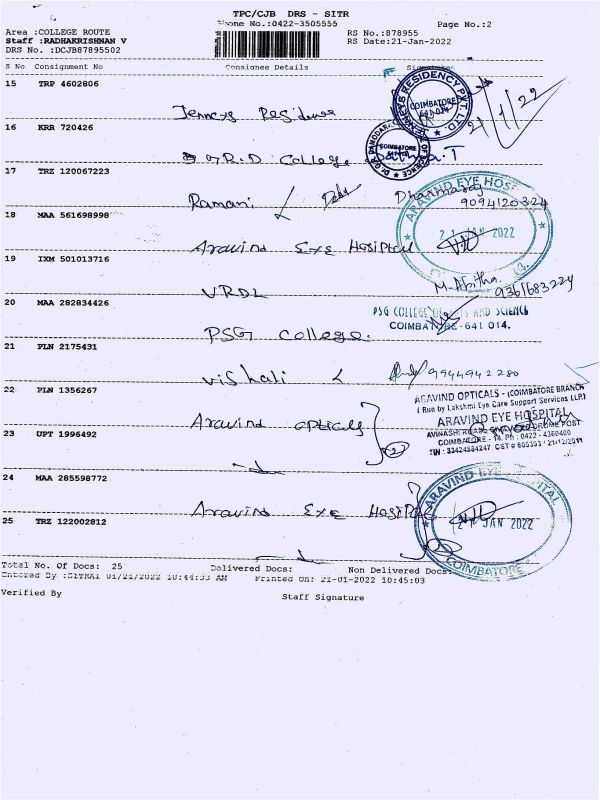 TPC/CJB DRS - SITR
Phone No.:0422-3505555
Page No.:2
Area :COLLEGE ROUTE
RS No.:878955
Staff :RADHAKRISHNAN V
RS Date:21-Jan-2022
DRS No. :DCJB87895502
S No Consignment No Consignee Details Signature
15 TRP 4602806
Jenneys Residency
JENNEYS RESIDENCY PVT. LTD.
COIMBATORE
641 014
21/1/22
16 KRR 720426
G.R.D College
COIMBATORE
17 TRZ 120067223
Ramani
Dharmaraj
9094120324
18 MAA 561698998
Aravind Eye Hosiptal
ARAVIND EYE HOSPITAL
21 JAN 2022
19 IXM 501013716
VRDL
M. Abitha
9361683224
20 MAA 282834426
PSG college.
PSG COLLEGE OF ARTS AND SCIENCE
COIMBATORE - 641 014.
21 PLN 2175431
vishali
9944942280
22 PLN 1356267
Aravind opticals
(2)
ARAVIND OPTICALS - (COIMBATORE BRANCH)
( Run by Lakshmi Eye Care Support Services LLP)
ARAVIND EYE HOSPITAL
AVINASHI ROAD, CIVIL AERODROME POST
COIMBATORE - 14. Ph : 0422 - 4360400
23 UPT 1996492
24 MAA 285598772
Aravind Eye Hosiptal
ARAVIND EYE HOSPITAL
21 JAN 2022
COIMBATORE
25 TRZ 122002812
Total No. Of Docs: 25 Dalivered Docs: Non Delivered Docs:
Entered By :SITRAI 01/21/2022 10:44:33 AM Printed On: 21-01-2022 10:45:03
Verified By
Staff Signature